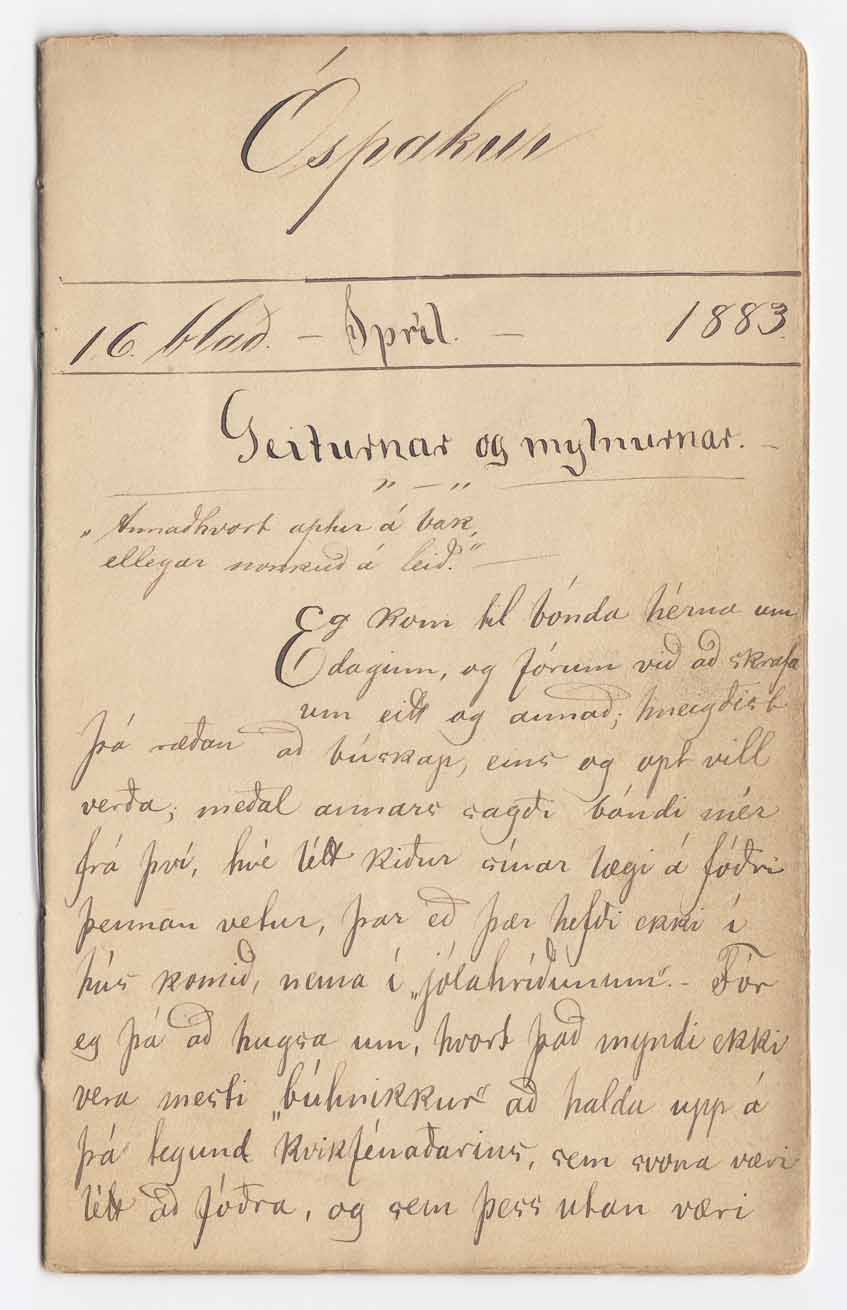 Óspakur
16. blað. - Apríl. - 1883.
Geiturnar og mylnurnar. -
„ - "
„Annaðhvort aptur á bak,
ellegar nokkuð á leið." -
Eg kom til bónda hérna um
daginn, og fórum við að skrafa
um eitt og annað; hneigðist
þá ræðan að búskap, eins og opt vill
verða; meðal annars sagði bóndi mér
frá því, hvé létt kiður sínar lægi á fóðri
þennan vetur, þar eð þær hefði ekki í
hús komið, nema í „jólahríðunum". - Fór
eg þá að hugsa um, hvort það myndi ekki
vera mesti „búhnikkur" að halda upp á
þá tegund kvikfénaðarins, sem svona væri
létt að fóðra, og sem þess utan væri